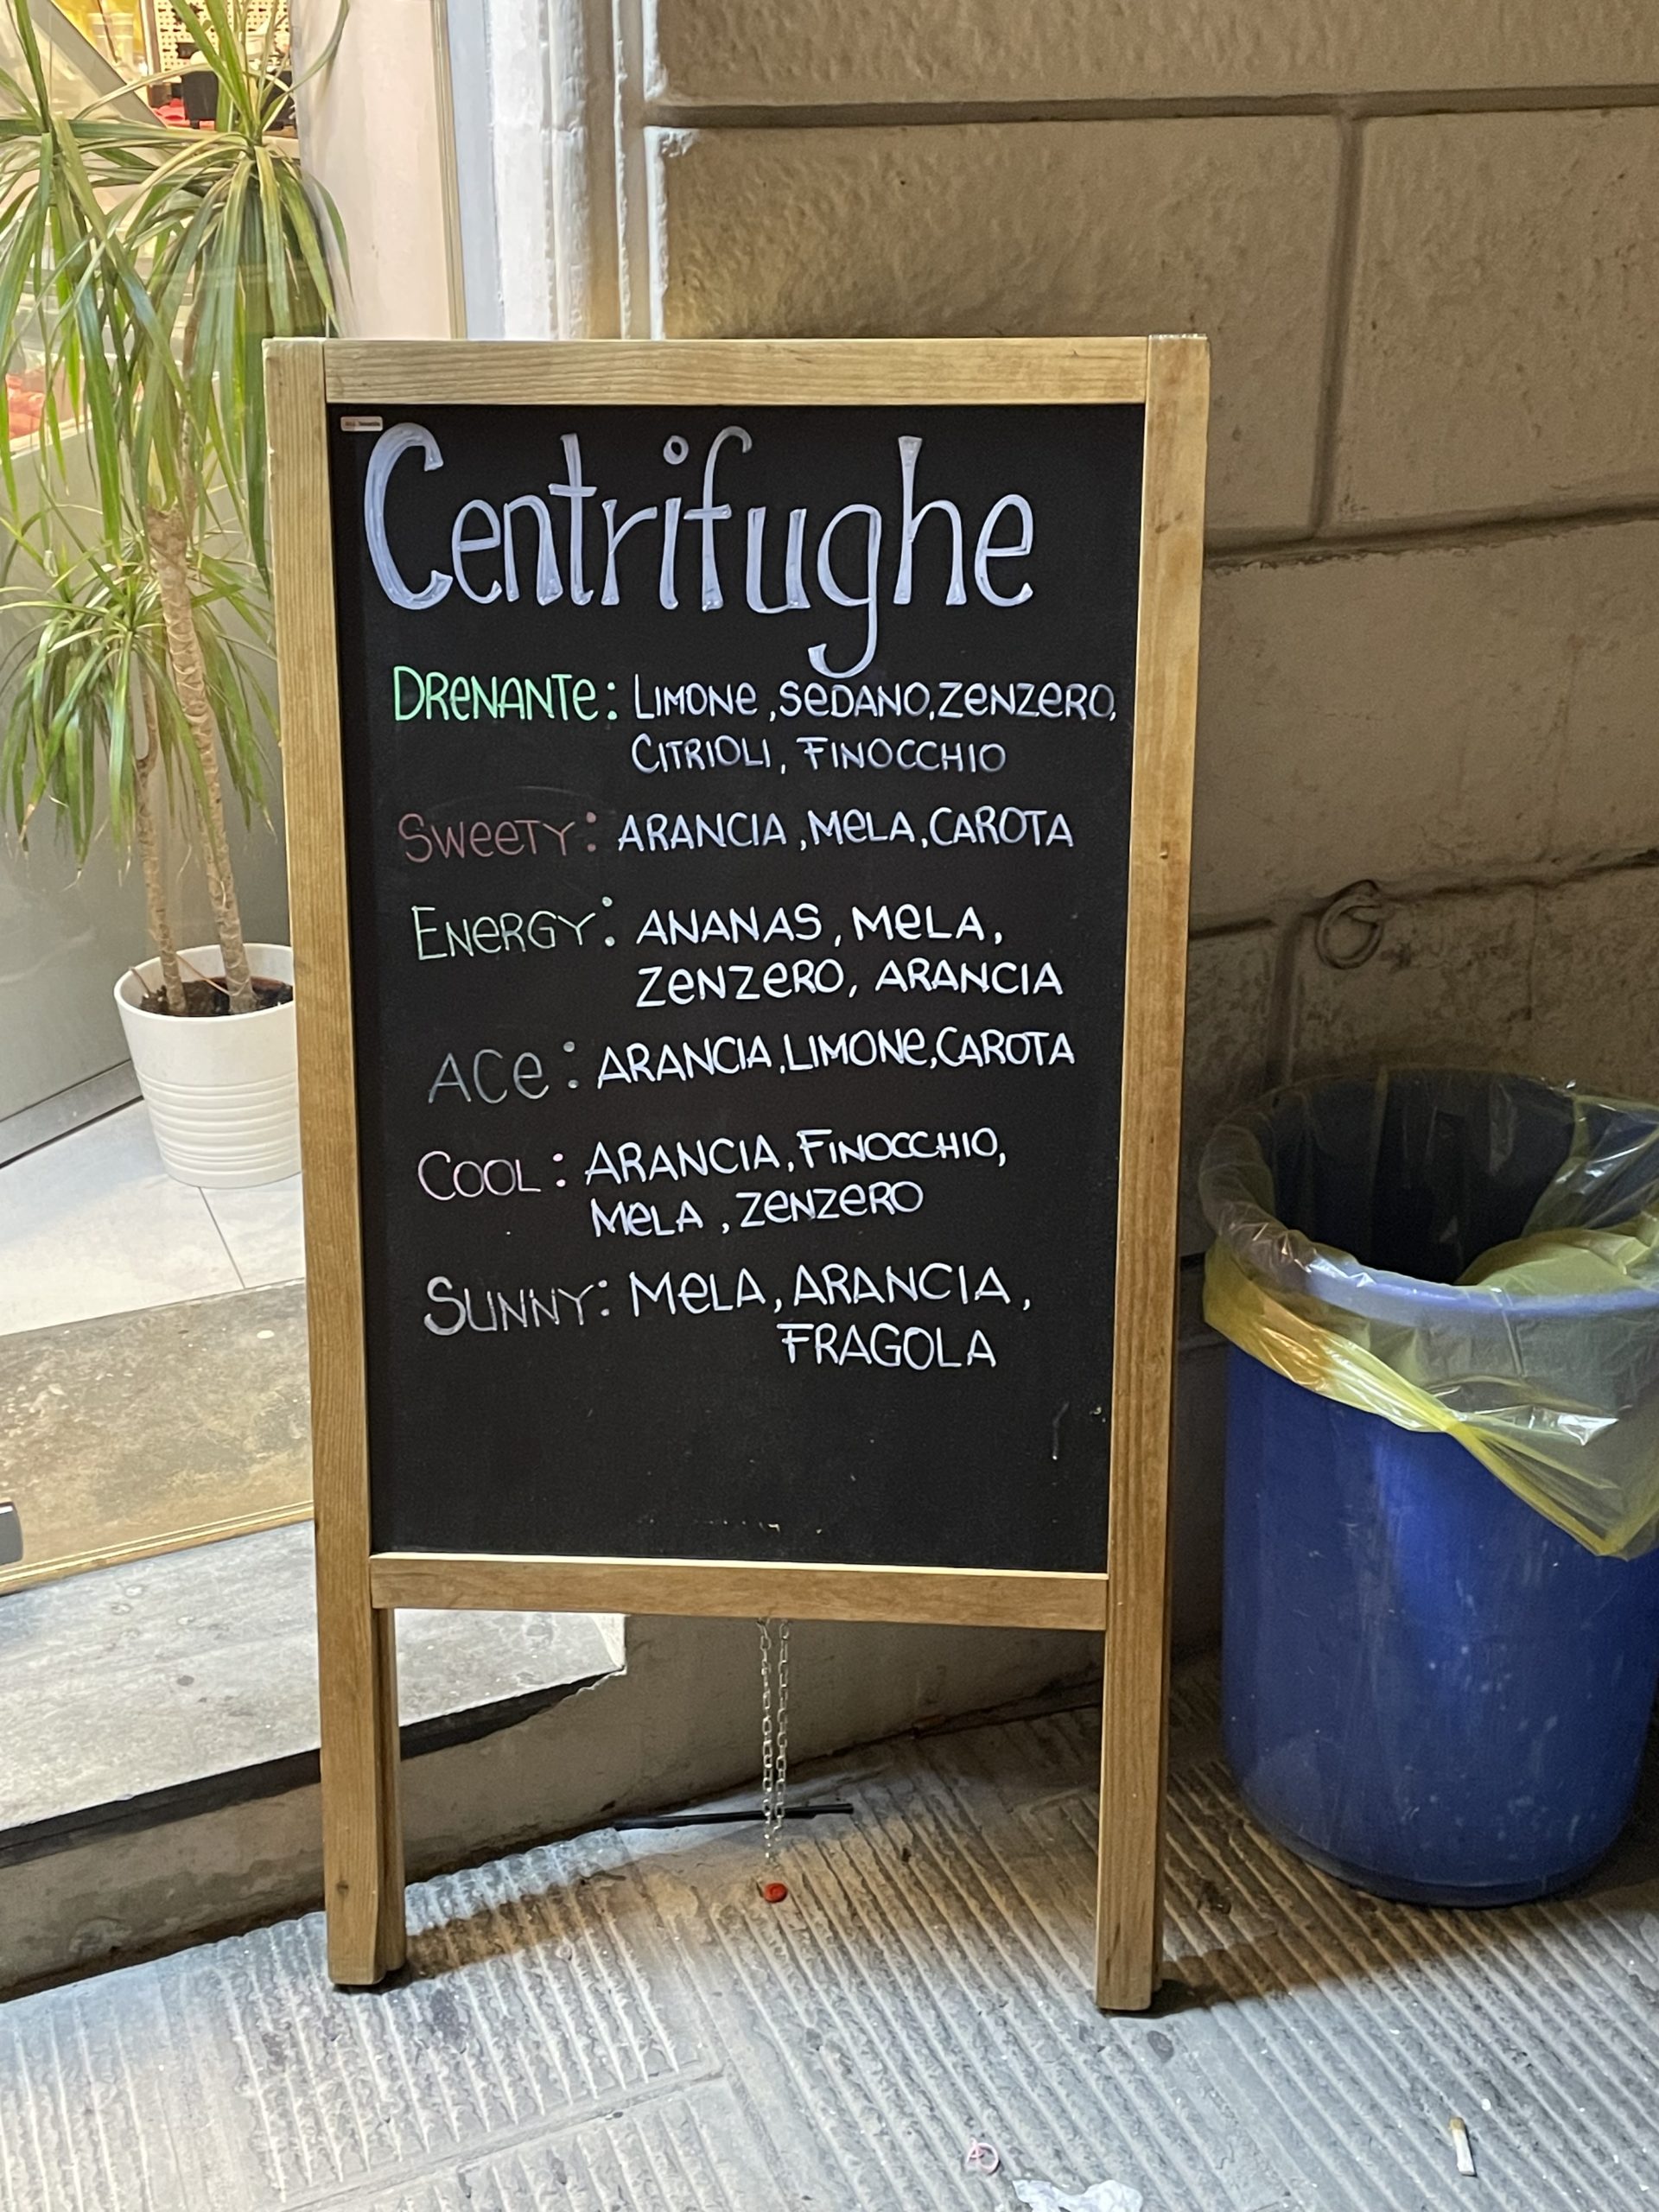 Centrifughe
DRENANTE: LIMONE, SEDANO, ZENZERO,
CITRIOLI, FINOCCHIO
SWEETY: ARANCIA, MELA, CAROTA
ENERGY: ANANAS, MELA,
ZENZERO, ARANCIA
ACE: ARANCIA, LIMONE, CAROTA
COOL: ARANCIA, FINOCCHIO,
MELA, ZENZERO
SUNNY: MELA, ARANCIA,
FRAGOLA